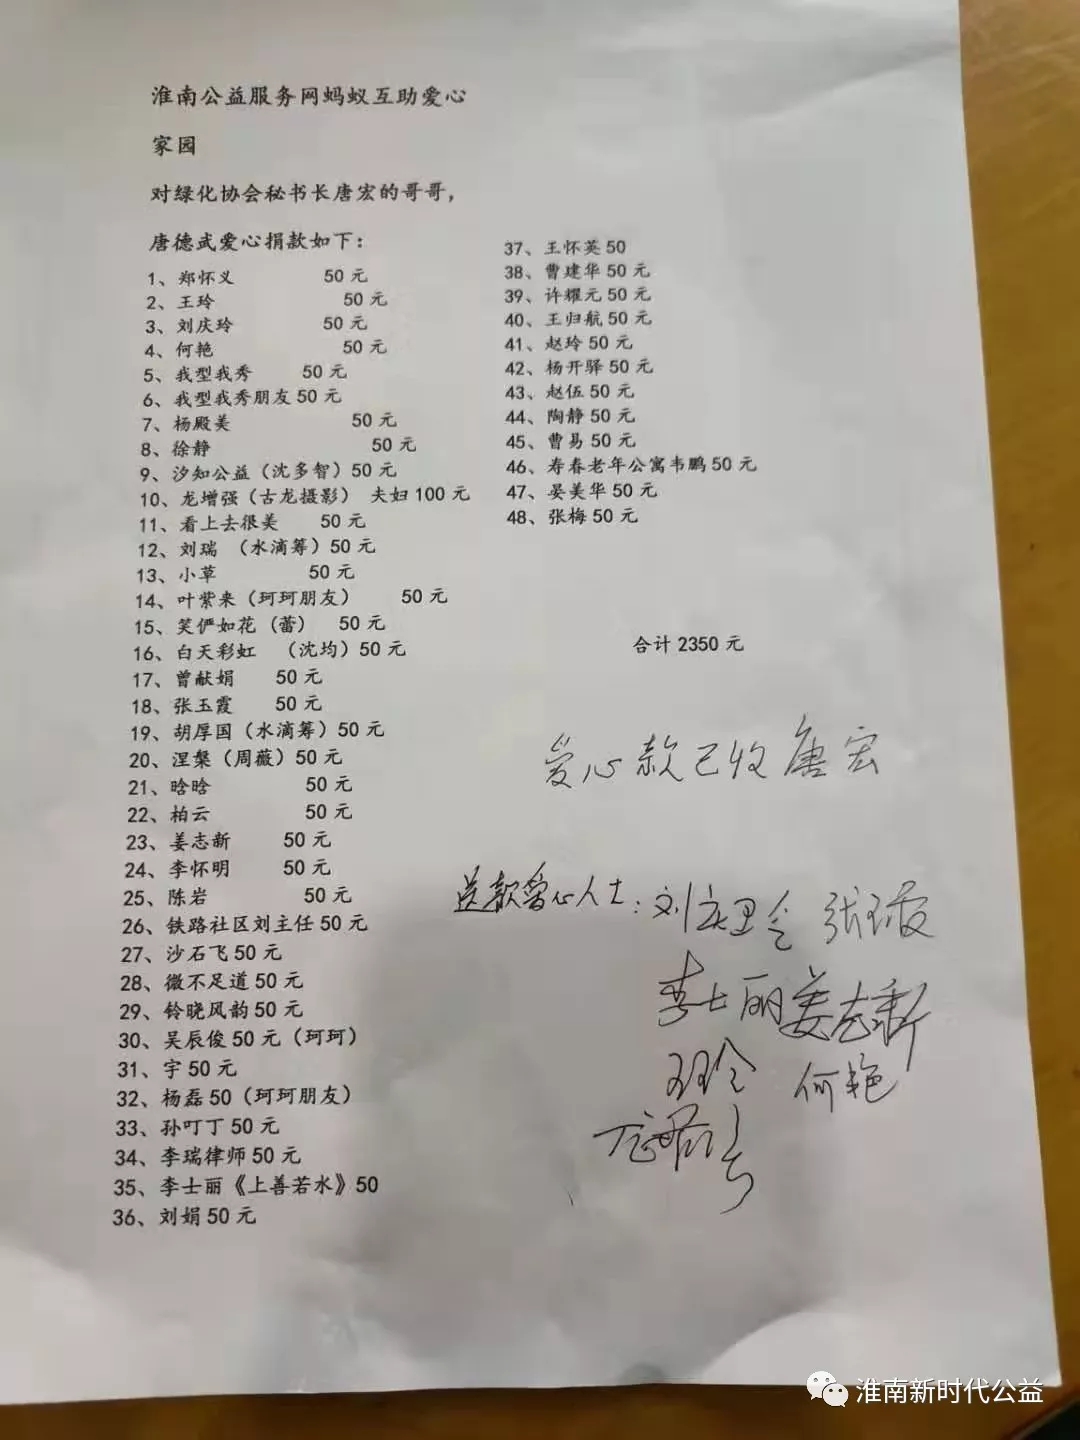 淮南公益服务网蚂蚁互助爱心
家园
对绿化协会秘书长唐宏的哥哥，
唐德武爱心捐款如下：
1、郑怀义 50 元
2、王玲 50 元
3、刘庆玲 50 元
4、何艳 50 元
5、我型我秀 50 元
6、我型我秀朋友 50 元
7、杨殿美 50 元
8、徐静 50 元
9、汐知公益（沈多智）50 元
10、龙增强（古龙摄影） 夫妇 100 元
11、看上去很美 50 元
12、刘瑞 （水滴筹）50 元
13、小草 50 元
14、叶紫来（珂珂朋友） 50 元
15、笑俨如花（蕾） 50 元
16、白天彩虹 （沈均）50 元
17、曾献娟 50 元
18、张玉霞 50 元
19、胡厚国（水滴筹）50 元
20、涅槃（周薇）50 元
21、晗晗 50 元
22、柏云 50 元
23、姜志新 50 元
24、李怀明 50 元
25、陈岩 50 元
26、铁路社区刘主任 50 元
27、沙石飞 50 元
28、微不足道 50 元
29、铃晓风韵 50 元
30、吴辰俊 50 元（珂珂）
31、宇 50 元
32、杨磊 50（珂珂朋友）
33、孙叮丁 50 元
34、李瑞律师 50 元
35、李士丽《上善若水》50
36、刘娟 50 元
37、王怀英 50
38、曹建华 50 元
39、许耀元 50 元
40、王归航 50 元
41、赵玲 50 元
42、杨开驿 50 元
43、赵伍 50 元
44、陶静 50 元
45、曹易 50 元
46、寿春老年公寓韦鹏 50 元
47、晏美华 50 元
48、张梅 50 元
合计 2350 元
爱心款已收 唐宏
送款爱心人士：刘庆玲 张玉霞
李士丽 姜志新
王玲 何艳
淮南新时代公益